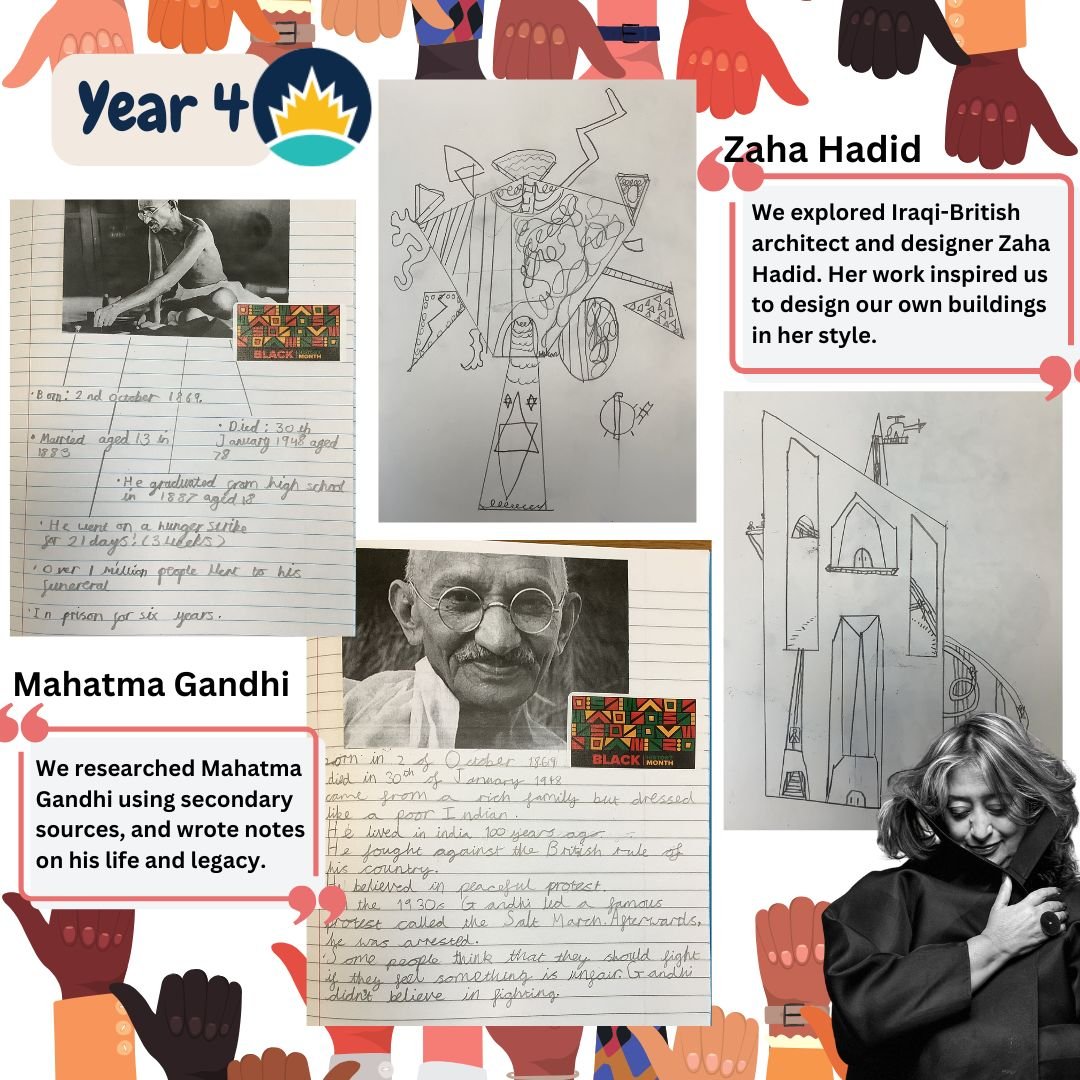 Year 4
Zaha Hadid
We explored Iraqi-British
architect and designer Zaha
Hadid. Her work inspired us
to design our own buildings
in her style.
BLACK HISTORY MONTH
· Born: 2nd october 1869.
· Married aged 13 in
1883
· Died: 30th
January 1948 aged
78
· He graduated from high school
in 1887 aged 18
· He went on a hunger strike
for 21 days. (3 weeks)
· Over 1 million people went to his
funereral
· In prison for six years.
Mahatma Gandhi
We researched Mahatma
Gandhi using secondary
sources, and wrote notes
on his life and legacy.
BLACK HISTORY MONTH
orn in 2 of October 1869
died in 30th of January 1948
came from a rich family but dressed
like a poor Indian.
He lived in india 100 years ago
He fought against the British rule of
his country.
believed in peaceful protest.
the 1930s Gandhi led a famous
protest called the Salt March. Afterwards,
he was arrested.
Some people think that they should fight
if they feel something is unfair. Gandhi
didn't believe in fighting.